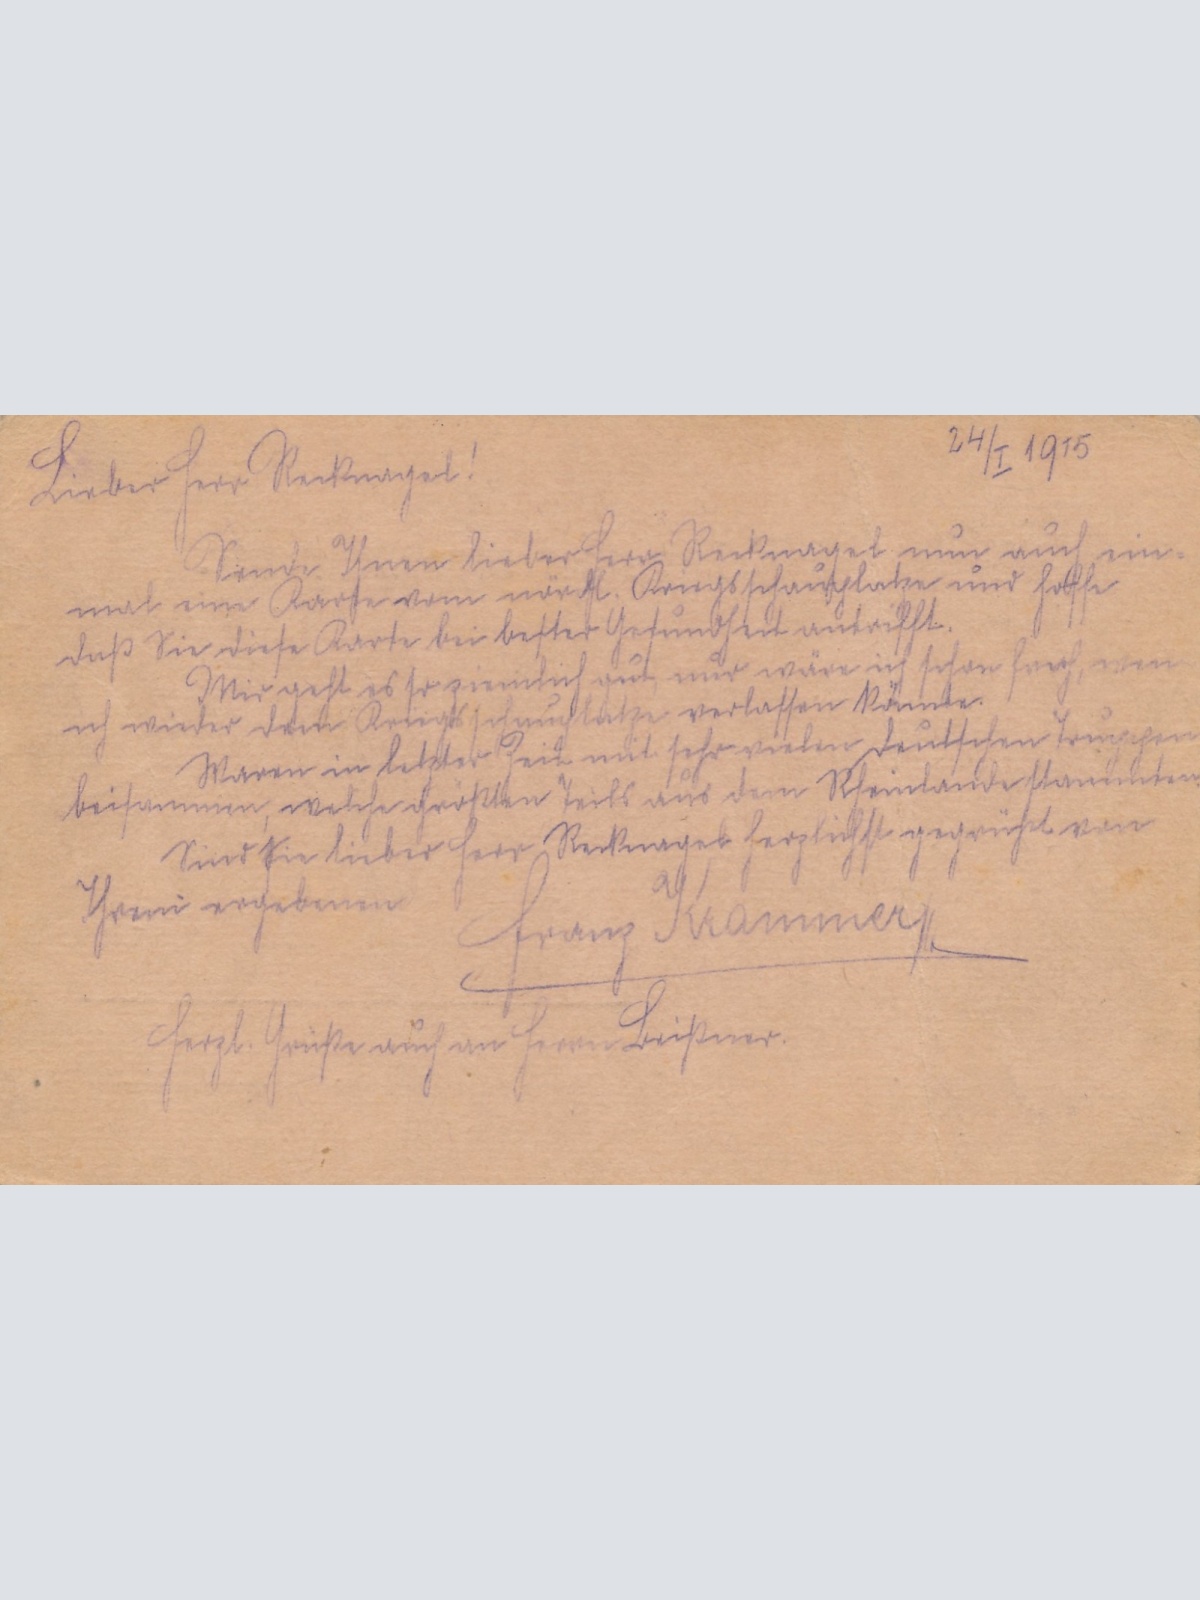 24/I 1915
Lieber Herr Recknagel!
Sende Ihnen lieber Herr Recknagel nun auch ein-
mal eine Karte vom nördl. Kriegsschauplatze und hoffe
daß Sie diese Karte bei bester Gesundheit antrifft.
Mir geht es so ziemlich gut nur wäre ich schon froh, wen
ich wieder dem Kriegsschauplatze verlassen könnte.
Waren in letzter Zeit mit sehr vielen deutschen Truppen
beisammen, welche größten Teils aus dem Rheinlande stammten.
Sind Sie lieber Herr Recknagel herzlichst gegrüßt von
Ihrem ergebenen
Franz Krammer
Herzl. Grüße auch an Herrn